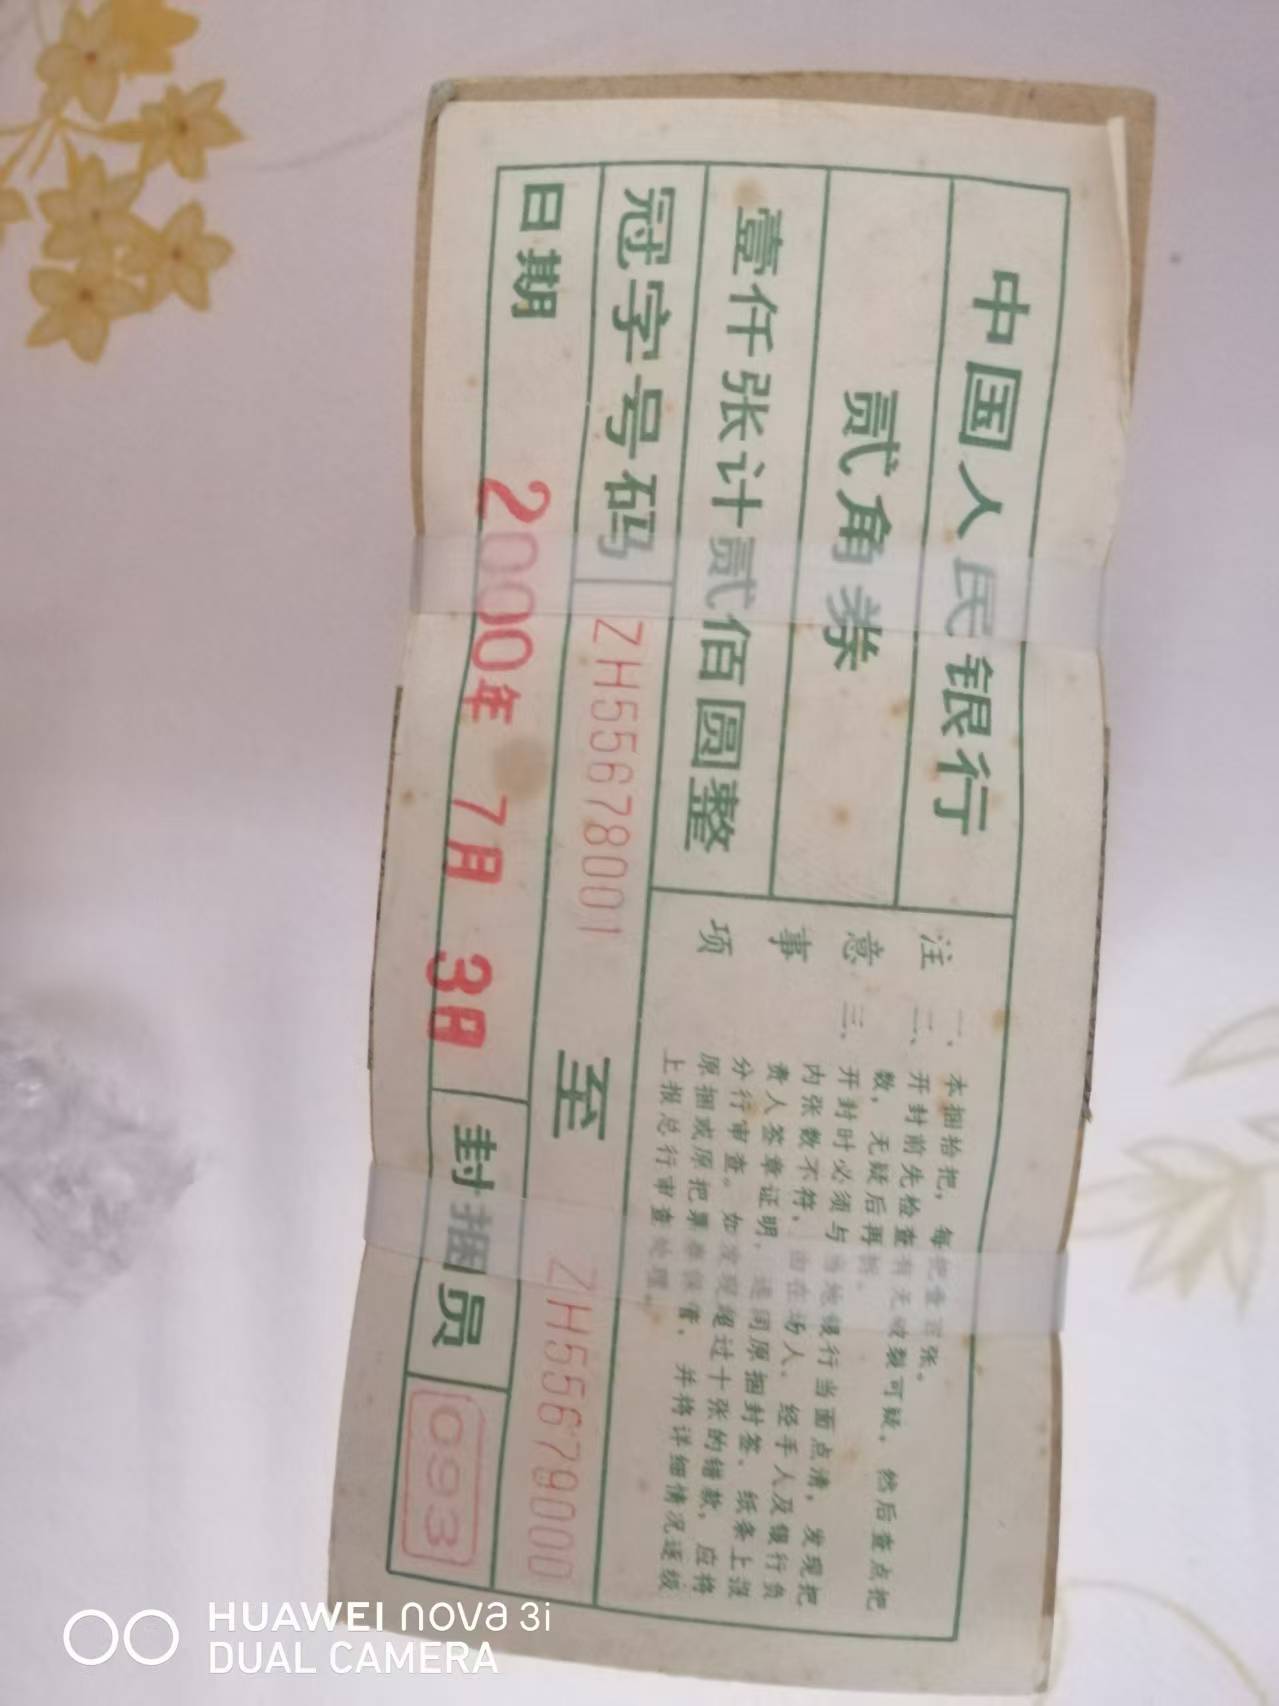 中国人民银行
贰角券
壹仟张计贰佰圆整
冠字号码
ZH55678001 至 ZH55679000
日期 2000年 7月 3日
封捆员 093
注意事项
一、本捆拾把，每把壹百张。
二、开封前先检查有无破裂可疑，然后查点把
数，无疑后再拆。
三、开封时必须与当地银行当面点清，发现把
内张数不符，由在场人、经手人及银行负
责人签章证明，连同原捆封签、纸条上报
分行审查。如发现超过十张的错款，应将
原捆或原把票券保管，并将详细情况逐级
上报总行审查处理。
HUAWEI nova 3i
DUAL CAMERA